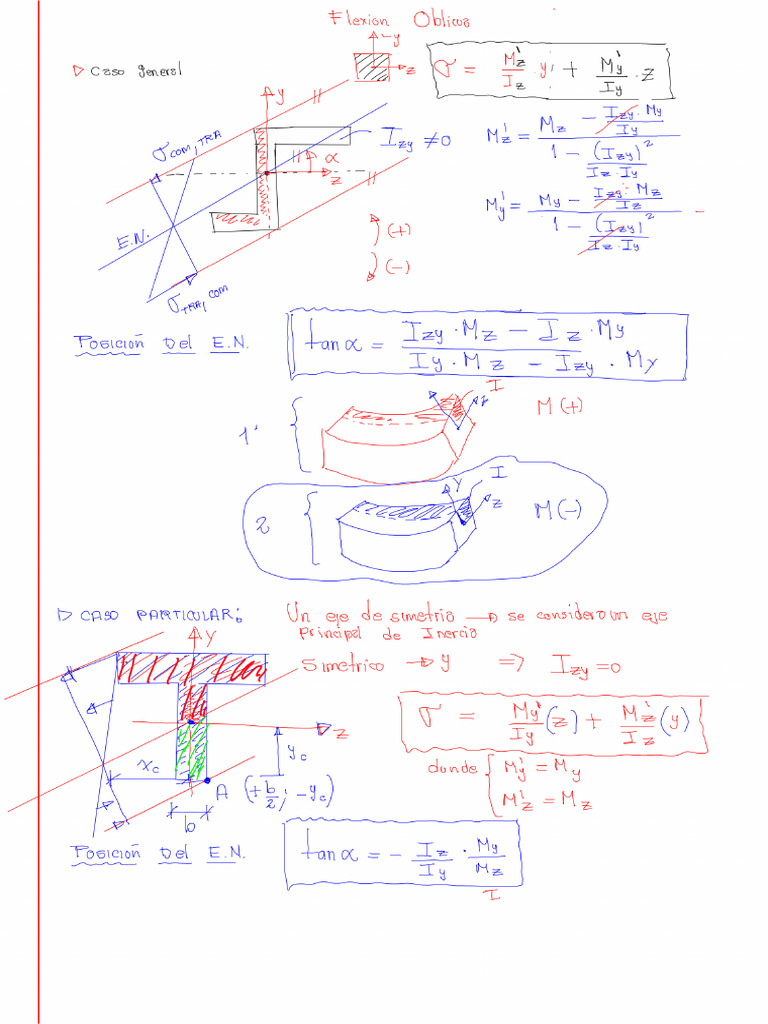 Flexion Oblicua
▷ Caso general
-y
z
σ = M'z/Iz · y + M'y/Iy · z
y
σ COM, TRA
Izy ≠ 0
M'z = (Mz - Izy·My/Iy) / (1 - (Izy)²/(Iz·Iy))
α
z
M'y = (My - Izy·Mz/Iz) / (1 - (Izy)²/(Iz·Iy))
E.N.
(+)
(-)
σ TRA, COM
Posición Del E.N.
tan α = (Izy·Mz - Iz·My) / (Iy·Mz - Izy·My)
I
z
M(+)
1
I
y
z
2
M(-)
▷ CASO PARTICULAR:
Un eje de simetría → se considera un eje
Principal de Inercia
y
Simetrico → y ⇒ Izy = 0
σ = M'y/Iy (z) + M'z/Iz (y)
z
yc
donde { M'y = My
xc
A (+b/2; -yc)
M'z = Mz
b
Posición Del E.N.
tan α = - Iz/Iy · My/Mz
I